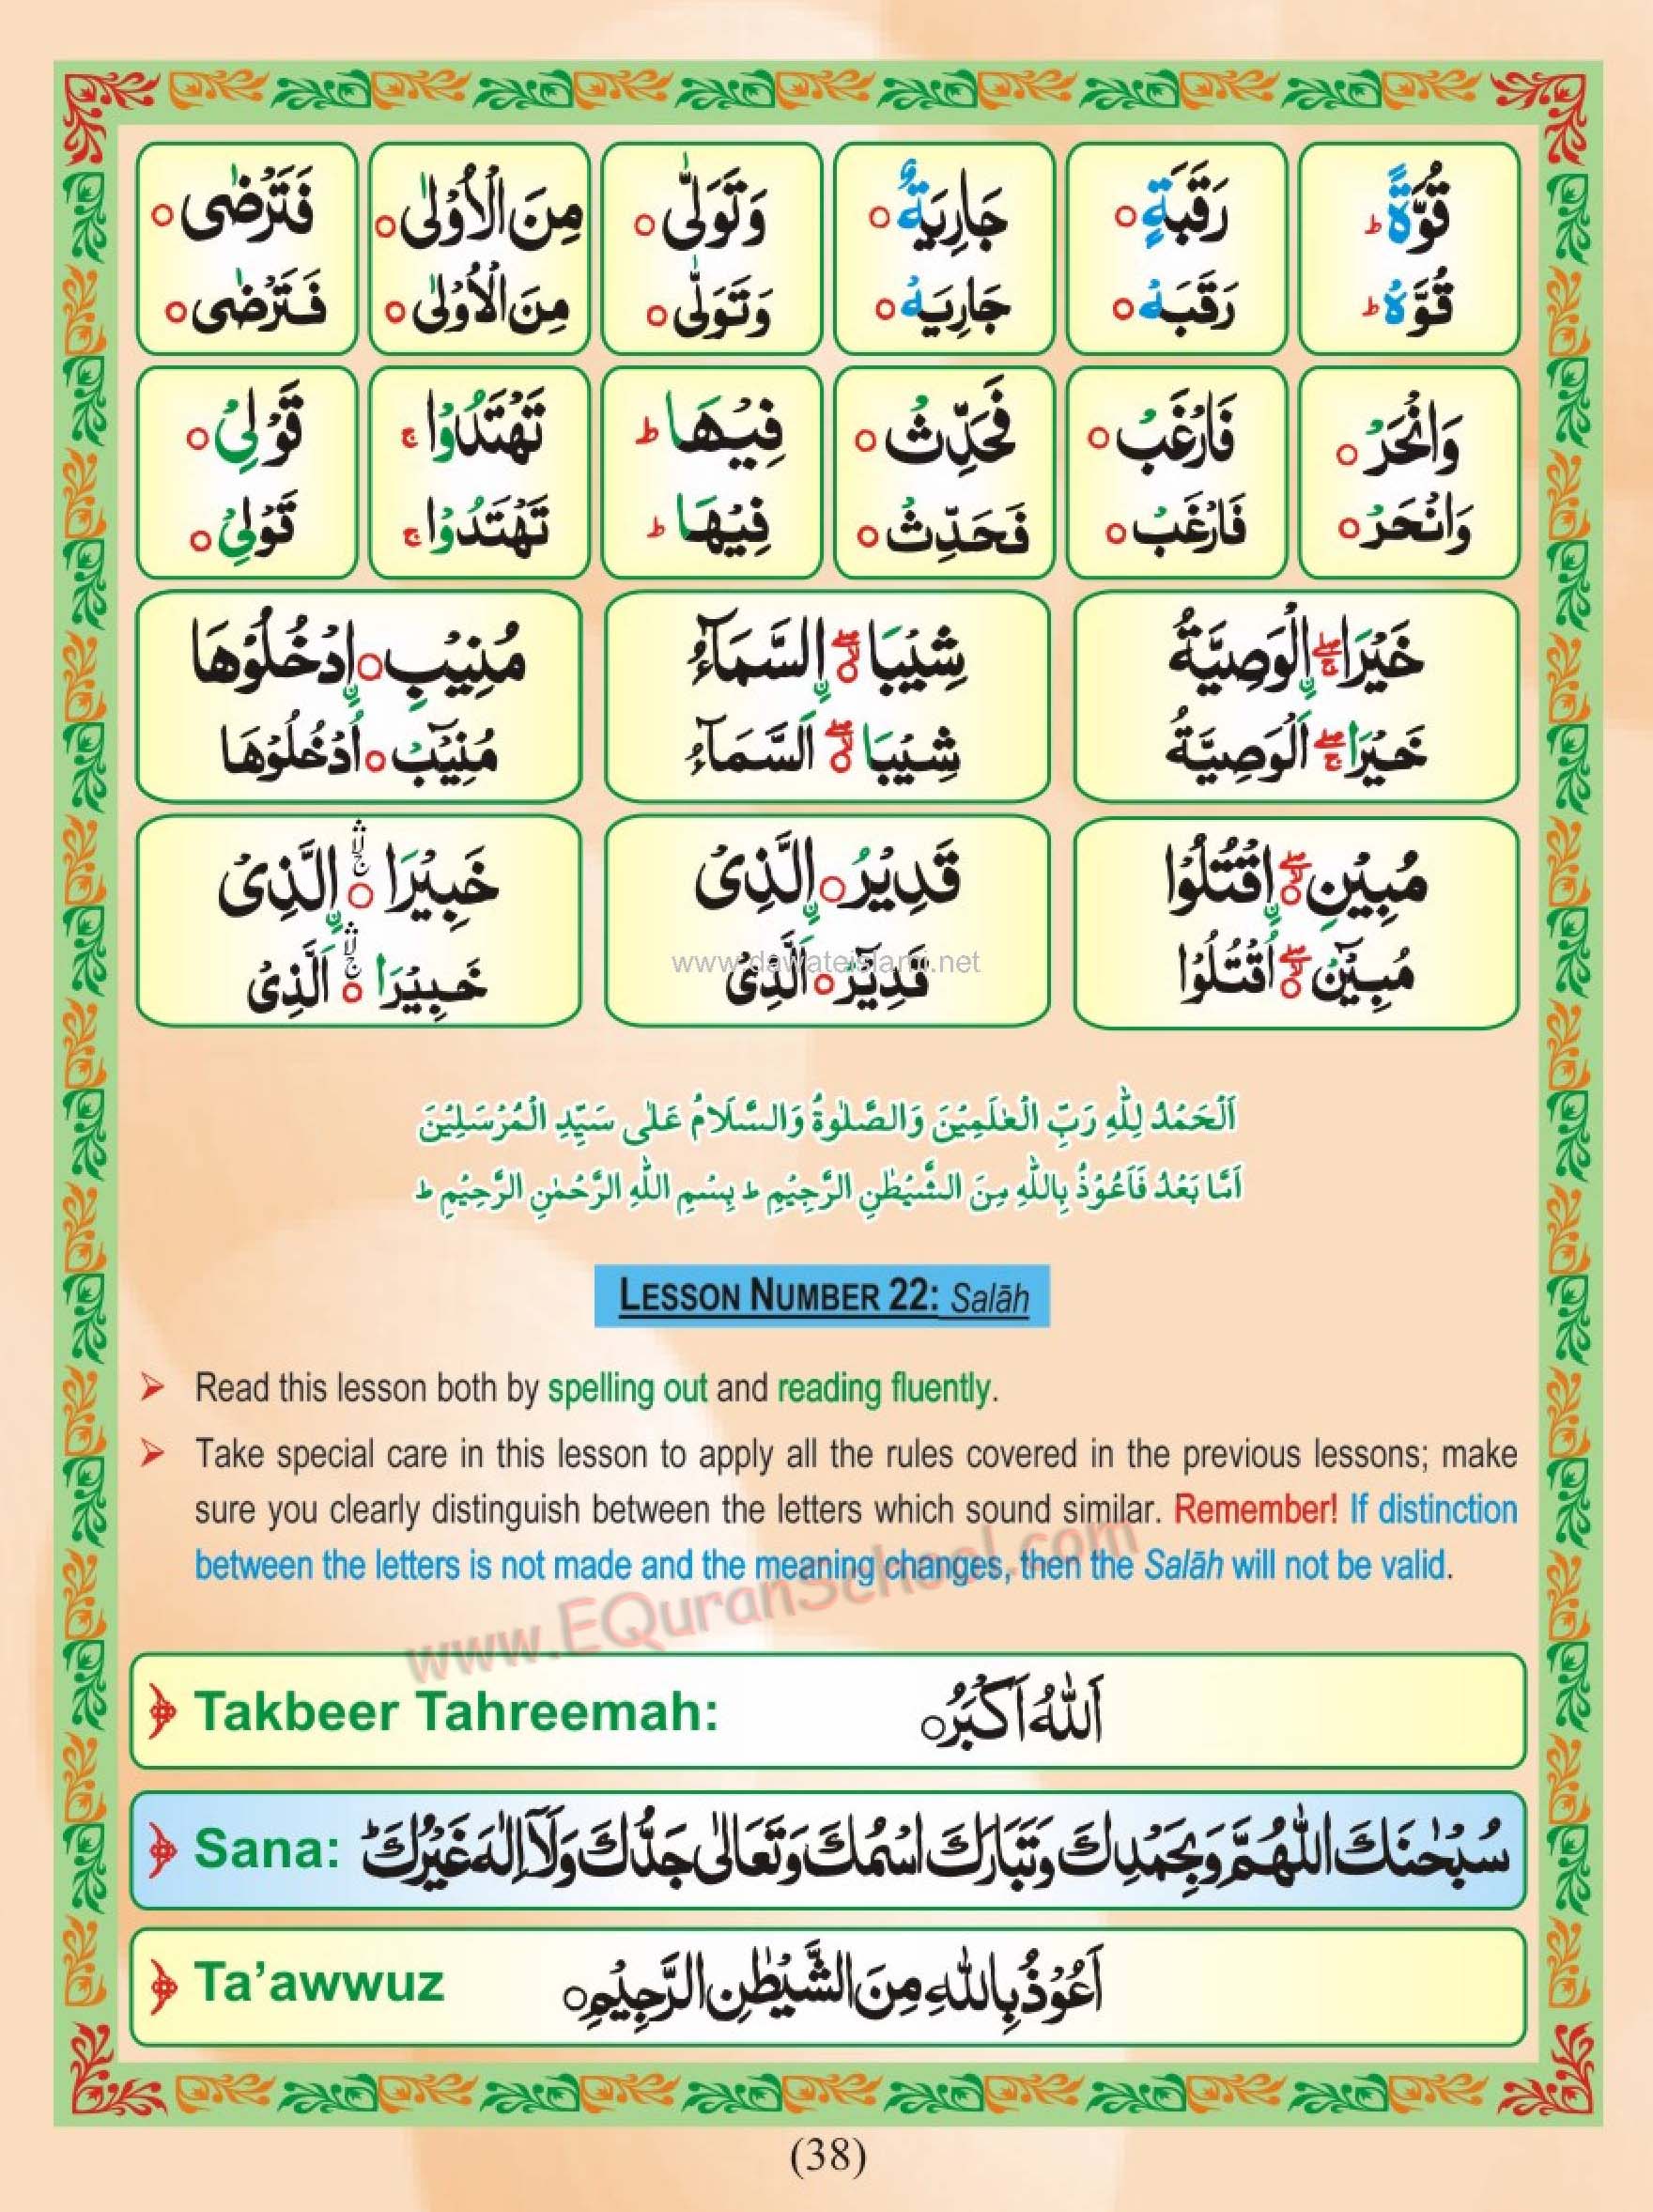 قُوَّةً ط رَقَبَةٍ ○ جَارِيَةٌ ○ وَتَوَلّٰى ○ مِنَ الْاُوْلٰى ○ فَتَرْضٰى ○
قُوَّهْ ط رَقَبَهْ ○ جَارِيَهْ ○ وَتَوَلّٰى ○ مِنَ الْاُوْلٰى ○ فَتَرْضٰى ○
وَانْحَرْ ○ فَارْغَبْ ○ فَحَدِّثْ ○ فِيْهَا ط تَهْتَدُوْا ج قَوْلِيْ ○
وَانْحَرْ ○ فَارْغَبْ ○ فَحَدِّثْ ○ فِيْهَا ط تَهْتَدُوْا ج قَوْلِيْ ○
خَيْرَا ۚۖ نِ الْوَصِيَّةُ شِيْبَا ○ۙۖ نِ السَّمَآءُ مُنِيْبِ ○ نِ ادْخُلُوْهَا
خَيْرَا ۚۖ اَلْوَصِيَّةُ شِيْبَا ○ۙۖ اَلسَّمَآءُ مُنِيْبْ ○ اُدْخُلُوْهَا
مُبِيْنِ ○ۙۖ نِ اقْتُلُوْا قَدِيْرُ ○ نِ الَّذِىْ خَبِيْرَا ○ۚۛۙ نِ الَّذِىْ
مُبِيْنْ ○ۙۖ اُقْتُلُوْا قَدِيْرْ ○ اَلَّذِىْ خَبِيْرَا ○ۚۛۙ اَلَّذِىْ
www.dawateislami.net
اَلْحَمْدُ لِلّٰهِ رَبِّ الْعٰلَمِيْنَ وَالصَّلٰوةُ وَالسَّلَامُ عَلٰى سَيِّدِ الْمُرْسَلِيْنَ
اَمَّا بَعْدُ فَاَعُوْذُ بِاللّٰهِ مِنَ الشَّيْطٰنِ الرَّجِيْمِ ط بِسْمِ اللّٰهِ الرَّحْمٰنِ الرَّحِيْمِ ط
LESSON NUMBER 22: Salāh
➢ Read this lesson both by spelling out and reading fluently.
➢ Take special care in this lesson to apply all the rules covered in the previous lessons; make
sure you clearly distinguish between the letters which sound similar. Remember! If distinction
between the letters is not made and the meaning changes, then the Salāh will not be valid.
www.EQuranSchool.com
Takbeer Tahreemah: اَللّٰهُ اَكْبَرُ ○
Sana: سُبْحٰنَكَ اللّٰهُمَّ وَبِحَمْدِكَ وَتَبَارَكَ اسْمُكَ وَتَعَالٰى جَدُّكَ وَلَآ اِلٰهَ غَيْرُكَ ط
Ta’awwuz اَعُوْذُ بِاللّٰهِ مِنَ الشَّيْطٰنِ الرَّجِيْمِ ○
(38)